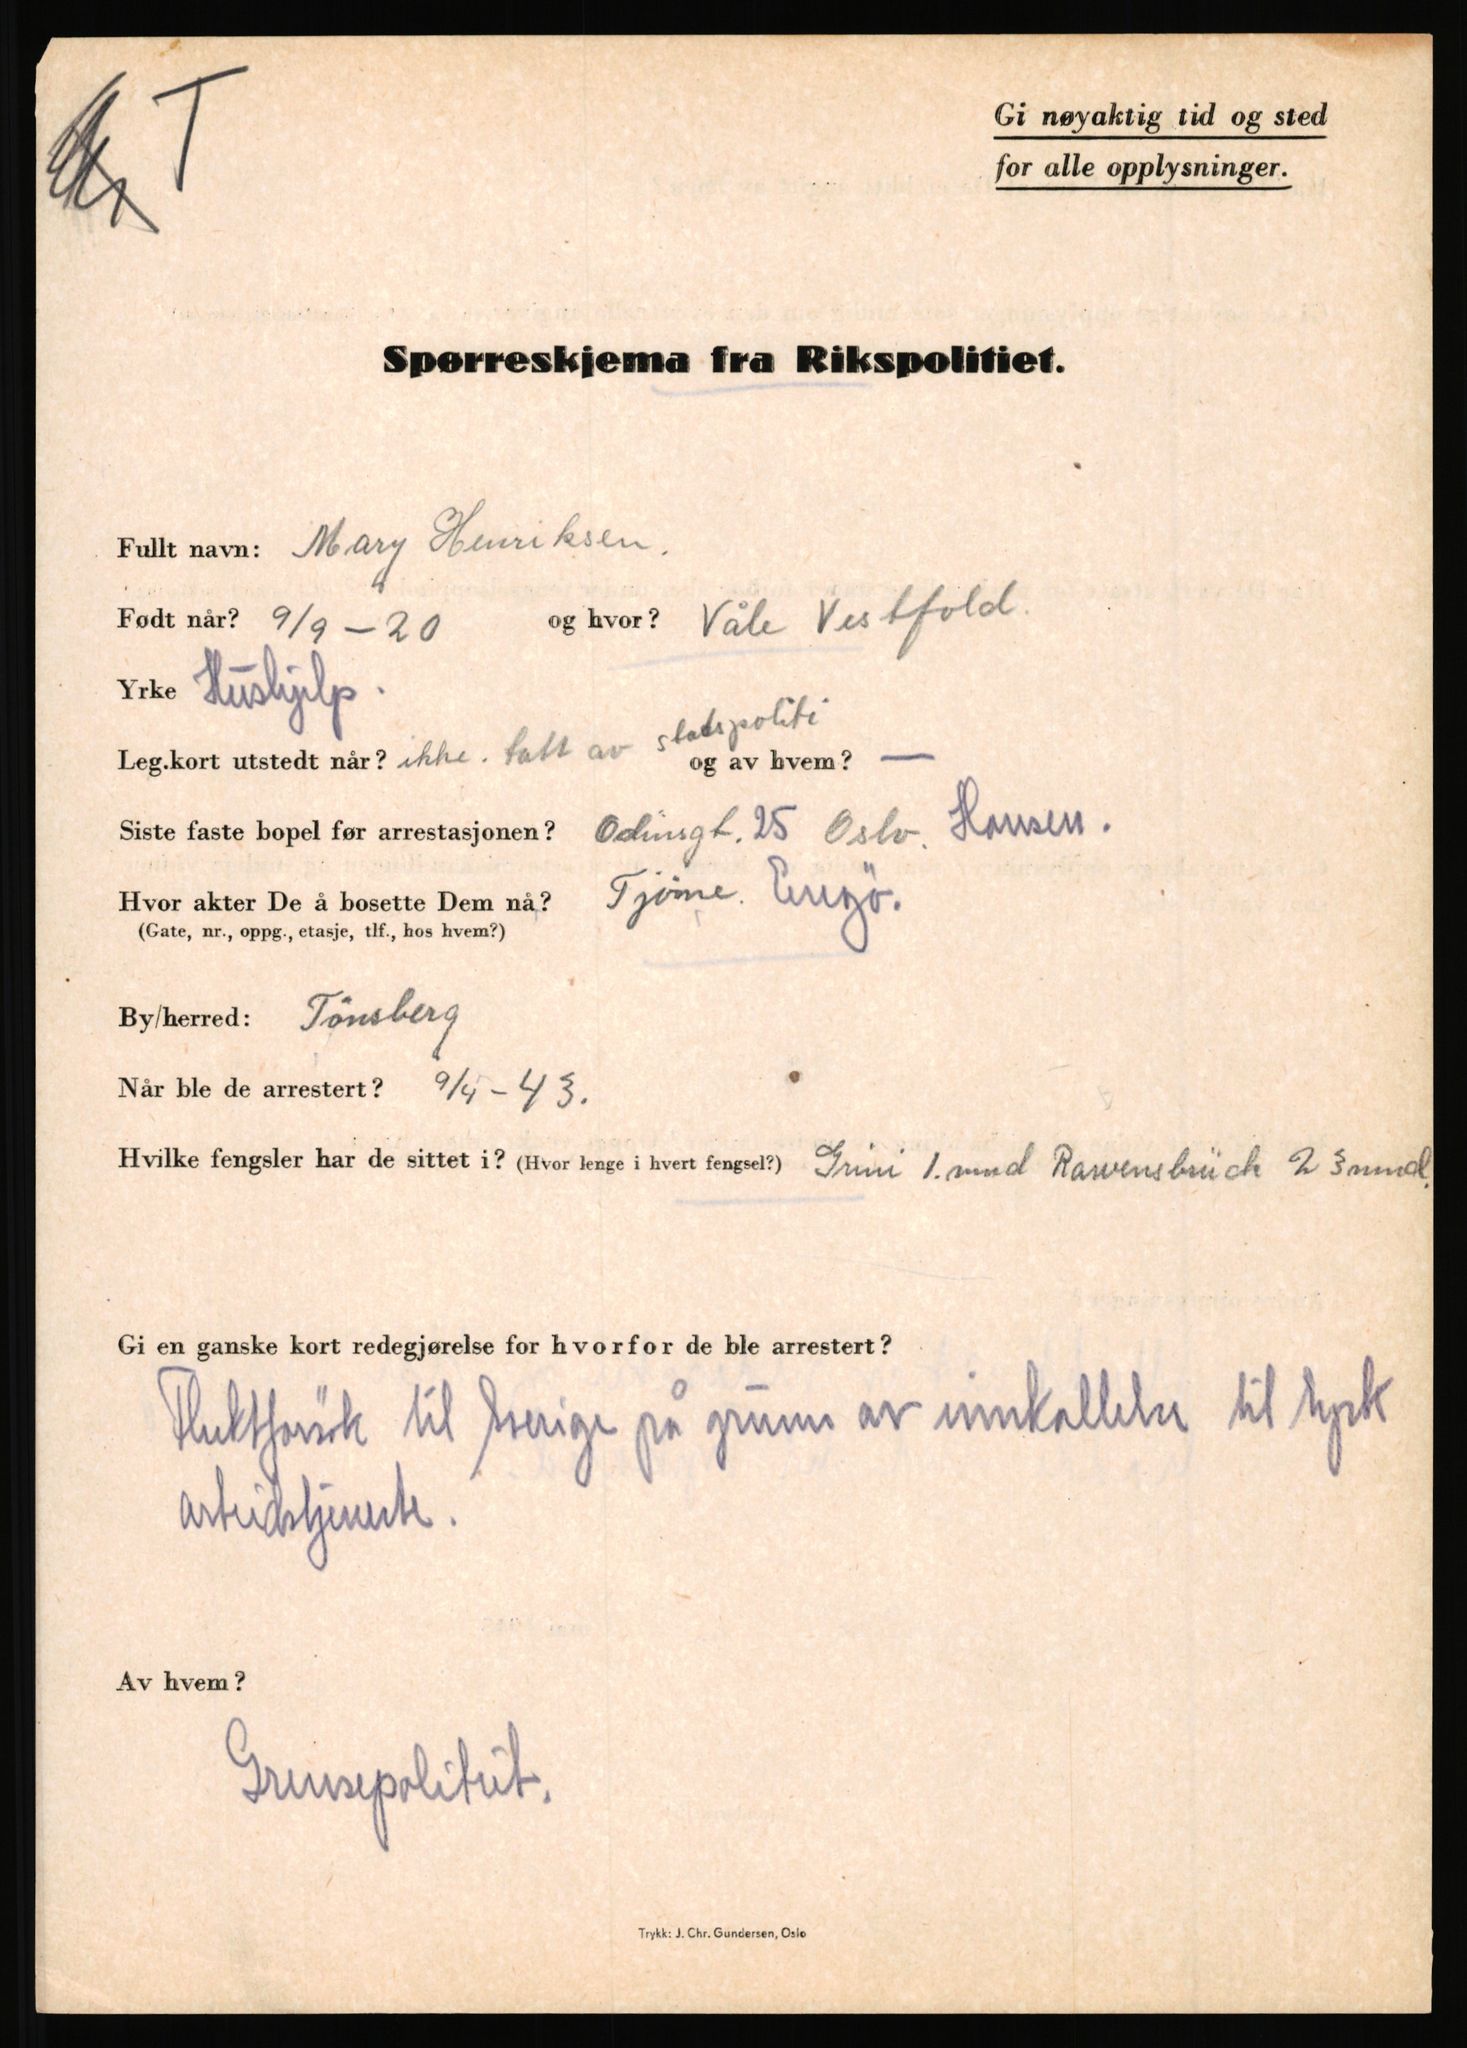 T
Gi nøyaktig tid og sted
for alle opplysninger.
Spørreskjema fra Rikspolitiet.
Fullt navn: Mary Henriksen.
Født når? 9/9-20 og hvor? Våle Vestfold.
Yrke Hushjelp.
Leg.kort utstedt når? ikke. tatt av statspoliti og av hvem? —
Siste faste bopel før arrestasjonen? Odinsgt. 25 Oslo. Hansen.
Hvor akter De å bosette Dem nå? Tjöme. Engö.
(Gate, nr., oppg., etasje, tlf., hos hvem?)
By/herred: Tönsberg
Når ble de arrestert? 9/4-43.
Hvilke fengsler har de sittet i? (Hvor lenge i hvert fengsel?) Grini 1. mnd Ravensbrück 23 mnd.
Gi en ganske kort redegjørelse for hvorfor de ble arrestert?
Fluktforsök til Sverige på grunn av innkallelse til tysk
arbeidstjeneste.
Av hvem?
Grensepolitiet.
Trykk: J. Chr. Gundersen, Oslo